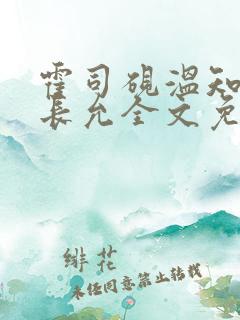 霍司砚温知
長允全文免
绯花
未经同意禁止转载